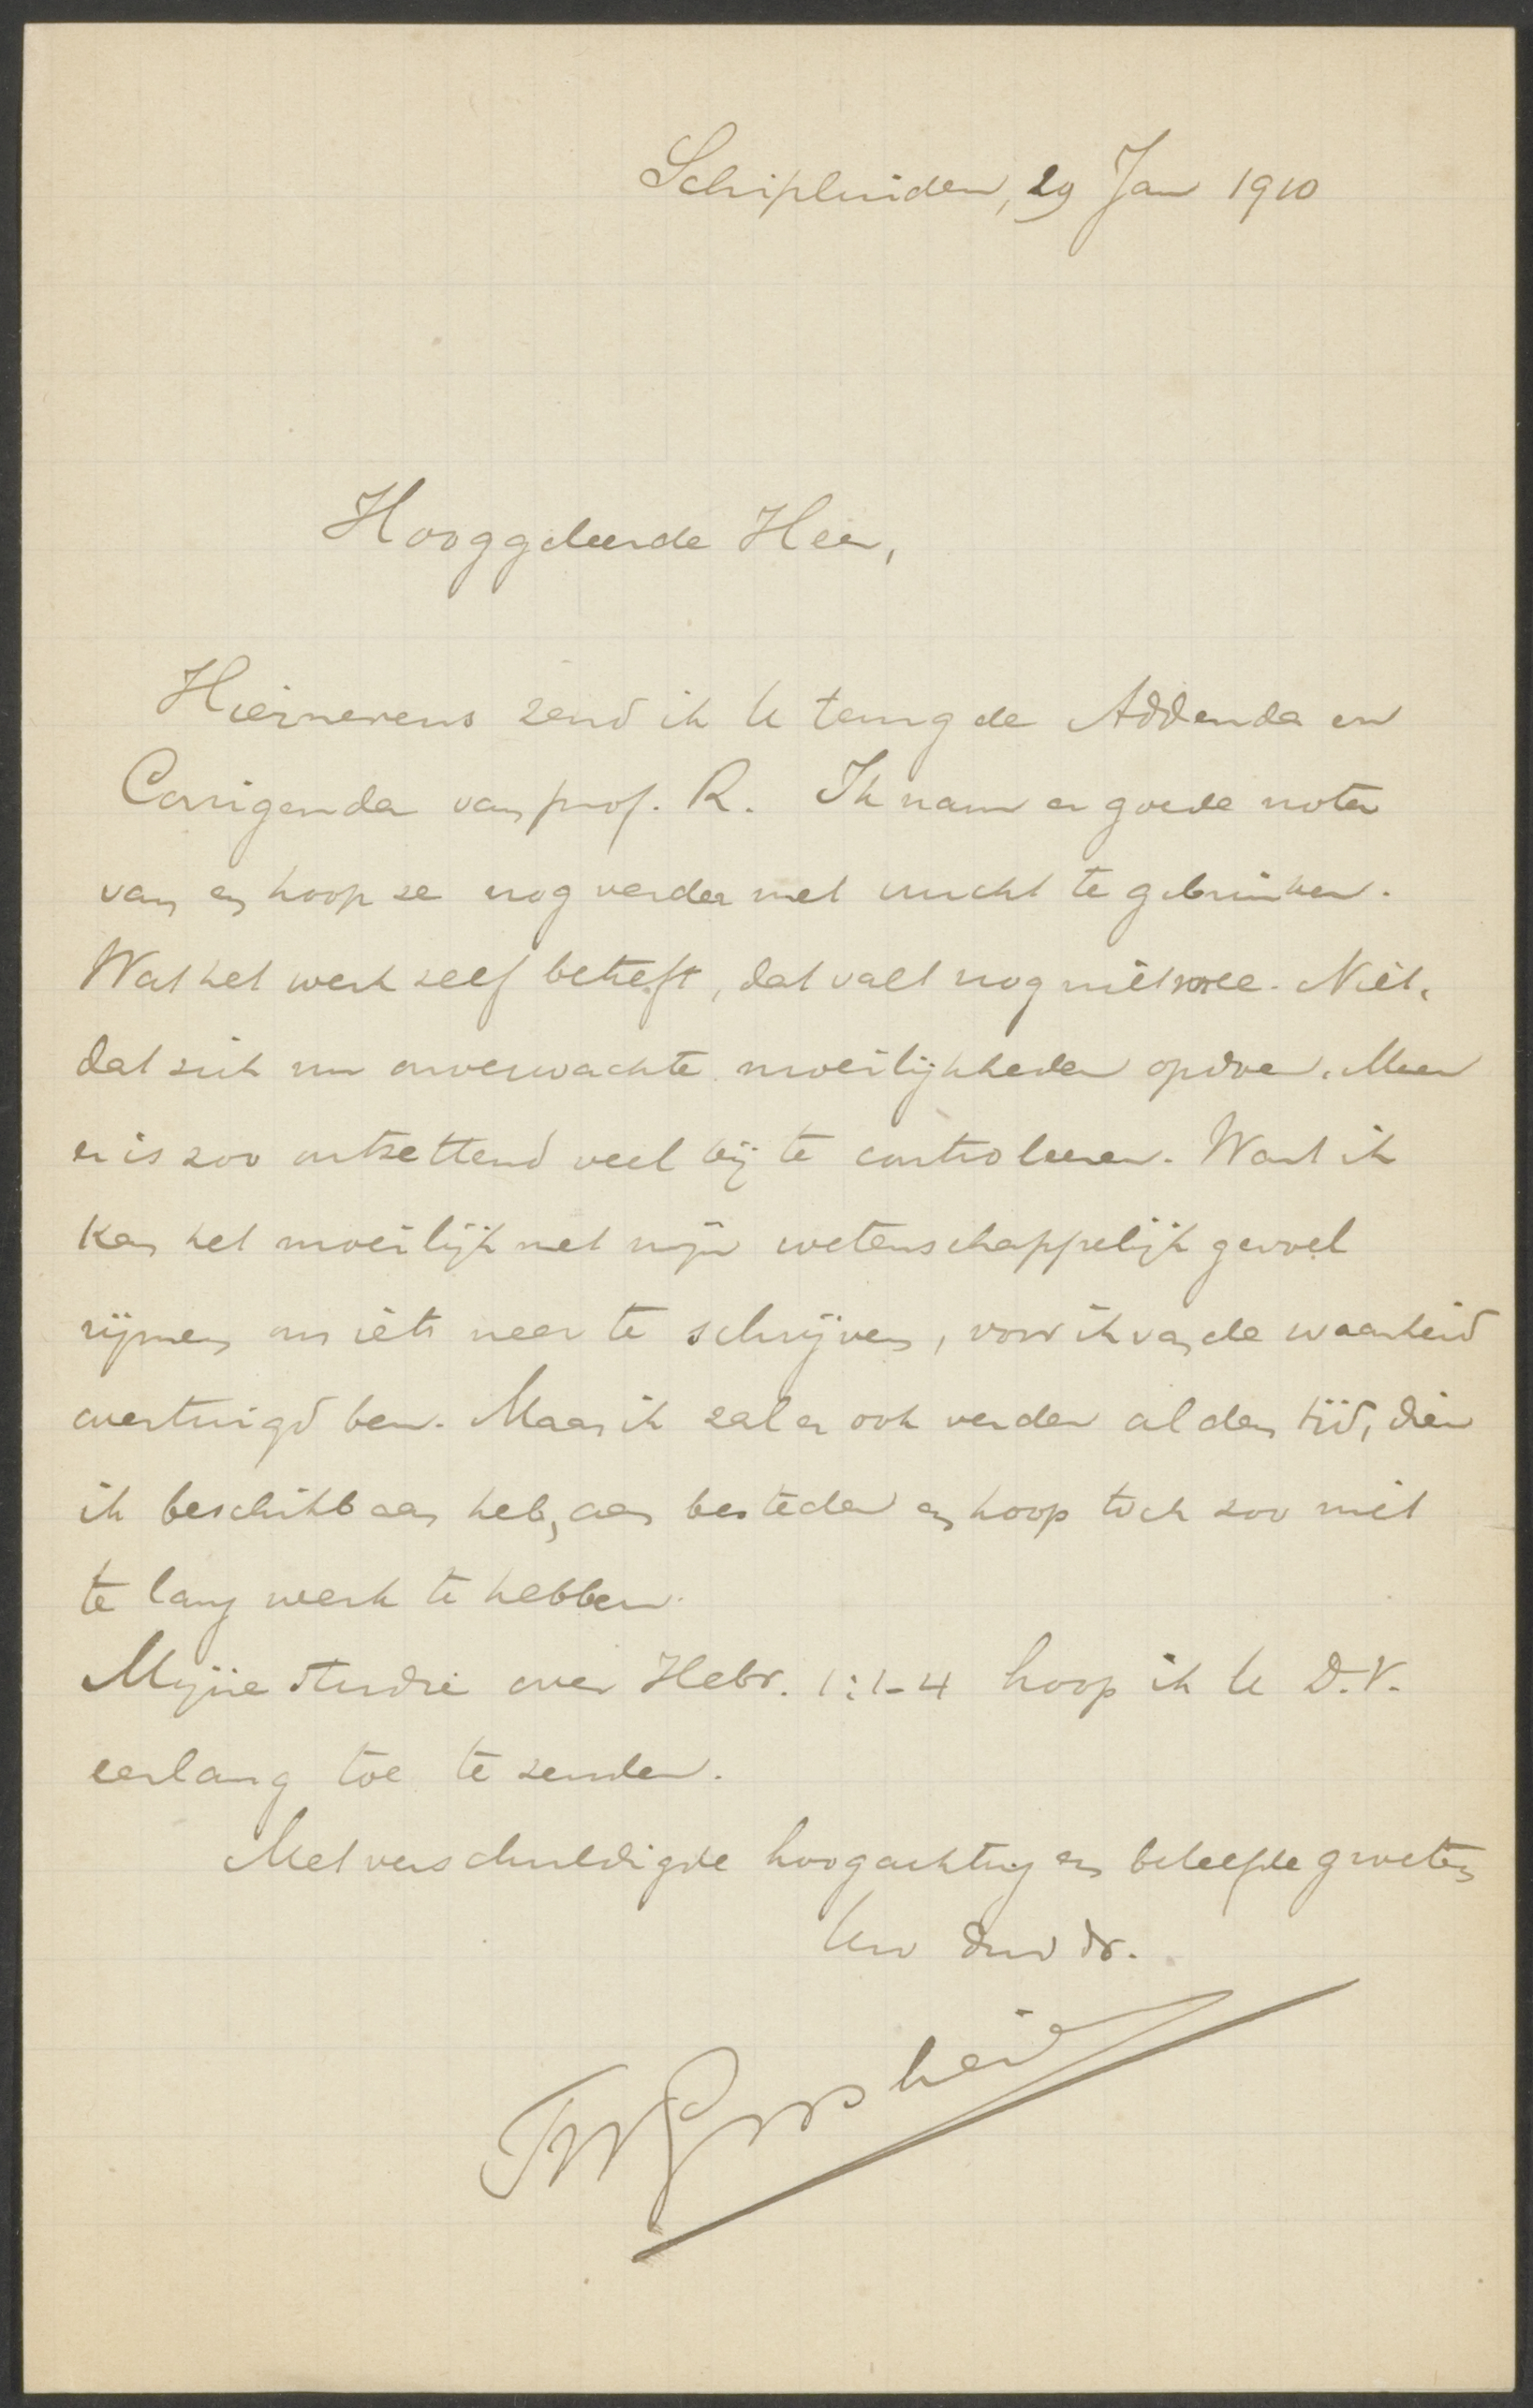 Schipluiden, 29 Jan 1910
Hooggeleerde Heer,
Hiernevens zend ik U terug de Addenda en
Corrigenda van prof. R. Ik nam er goede nota
van en hoop ze nog verder met vrucht te gebruiken.
Wat het werk zelf betreft, dat valt nog niet mee. Niet,
dat zich nu onverwachte moeilijkheden opdoen. Maar
er is zoo ontzettend veel bij te controleeren. Want ik
kan het moeilijk met mijn wetenschappelijk gevoel
rijmen om iets neer te schrijven, voor ik van de waarheid
overtuigd ben. Maar ik zal er ook verder al den tijd, dien
ik beschikbaar heb, aan besteden en hoop toch zoo niet
te lang werk te hebben.
Mijne studie over Hebr. 1:1-4 hoop ik U D.V.
eerlang toe te zenden.
Met verschuldigde hoogachting en beleefde groeten
Uw dw dr.
FWGrosheide